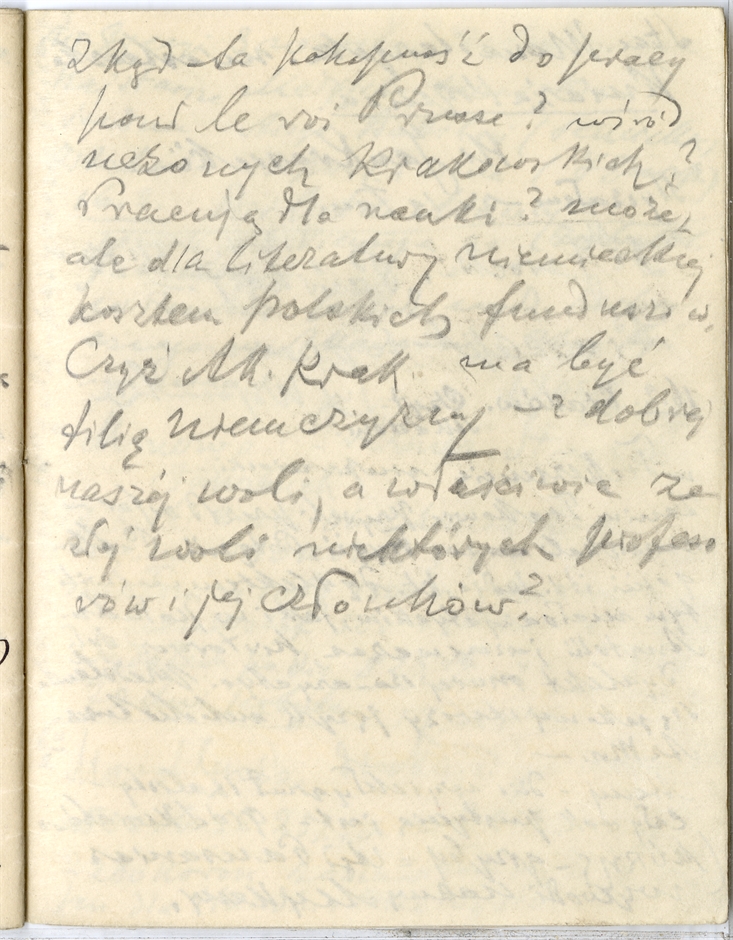 Zkąd ta pohopność do pracy
pour le roi Prusse? wśród
uczonych Krakowskich?
Pracują dla nauki? może,
ale dla literatury niemieckiej
kosztem polskich funduszów.
Czyż Ak. Krak. ma być
filią niemczyzny – z dobrej
naszej woli, a właściwie ze
złej woli niektórych profeso
rów i jej członków?